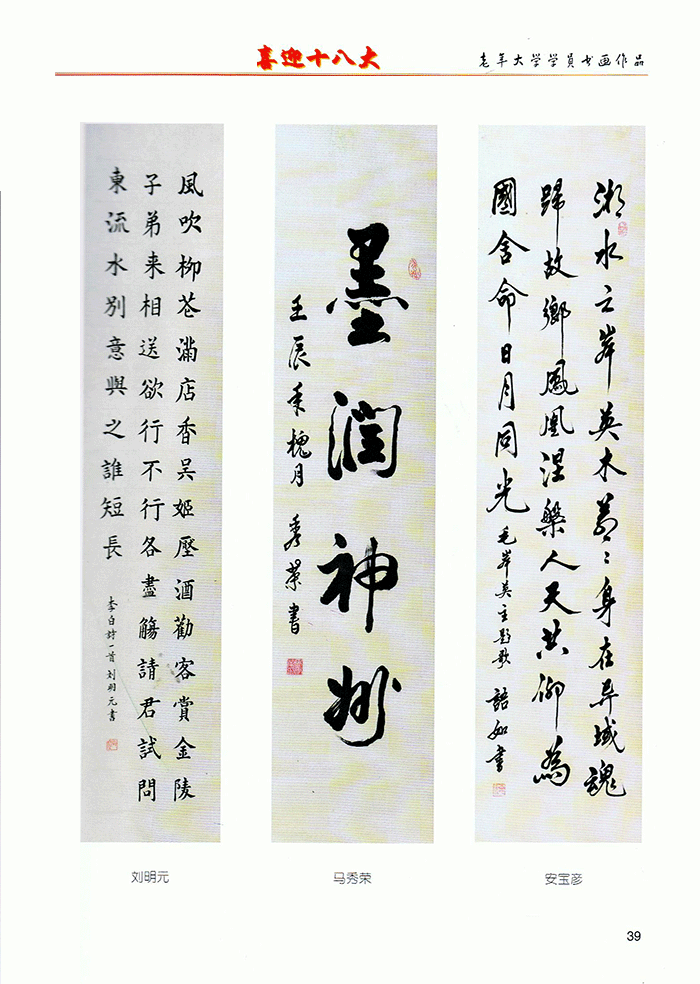 喜迎十八大
老年大学学员书画作品
風吹柳花滿店香吳姬壓酒勸客賞金陵
子弟来相送欲行不行各盡觴請君試問
東流水別意與之誰短長
李白詩一首 刘明元書
墨润神州
壬辰年槐月 秀荣書
湘水之岸英木身在异域魂
歸故鄉鳳凰涅槃人天共仰為
國舍命日月同光 毛岸英主题歌 書
刘明元
马秀荣
安宝彦
39